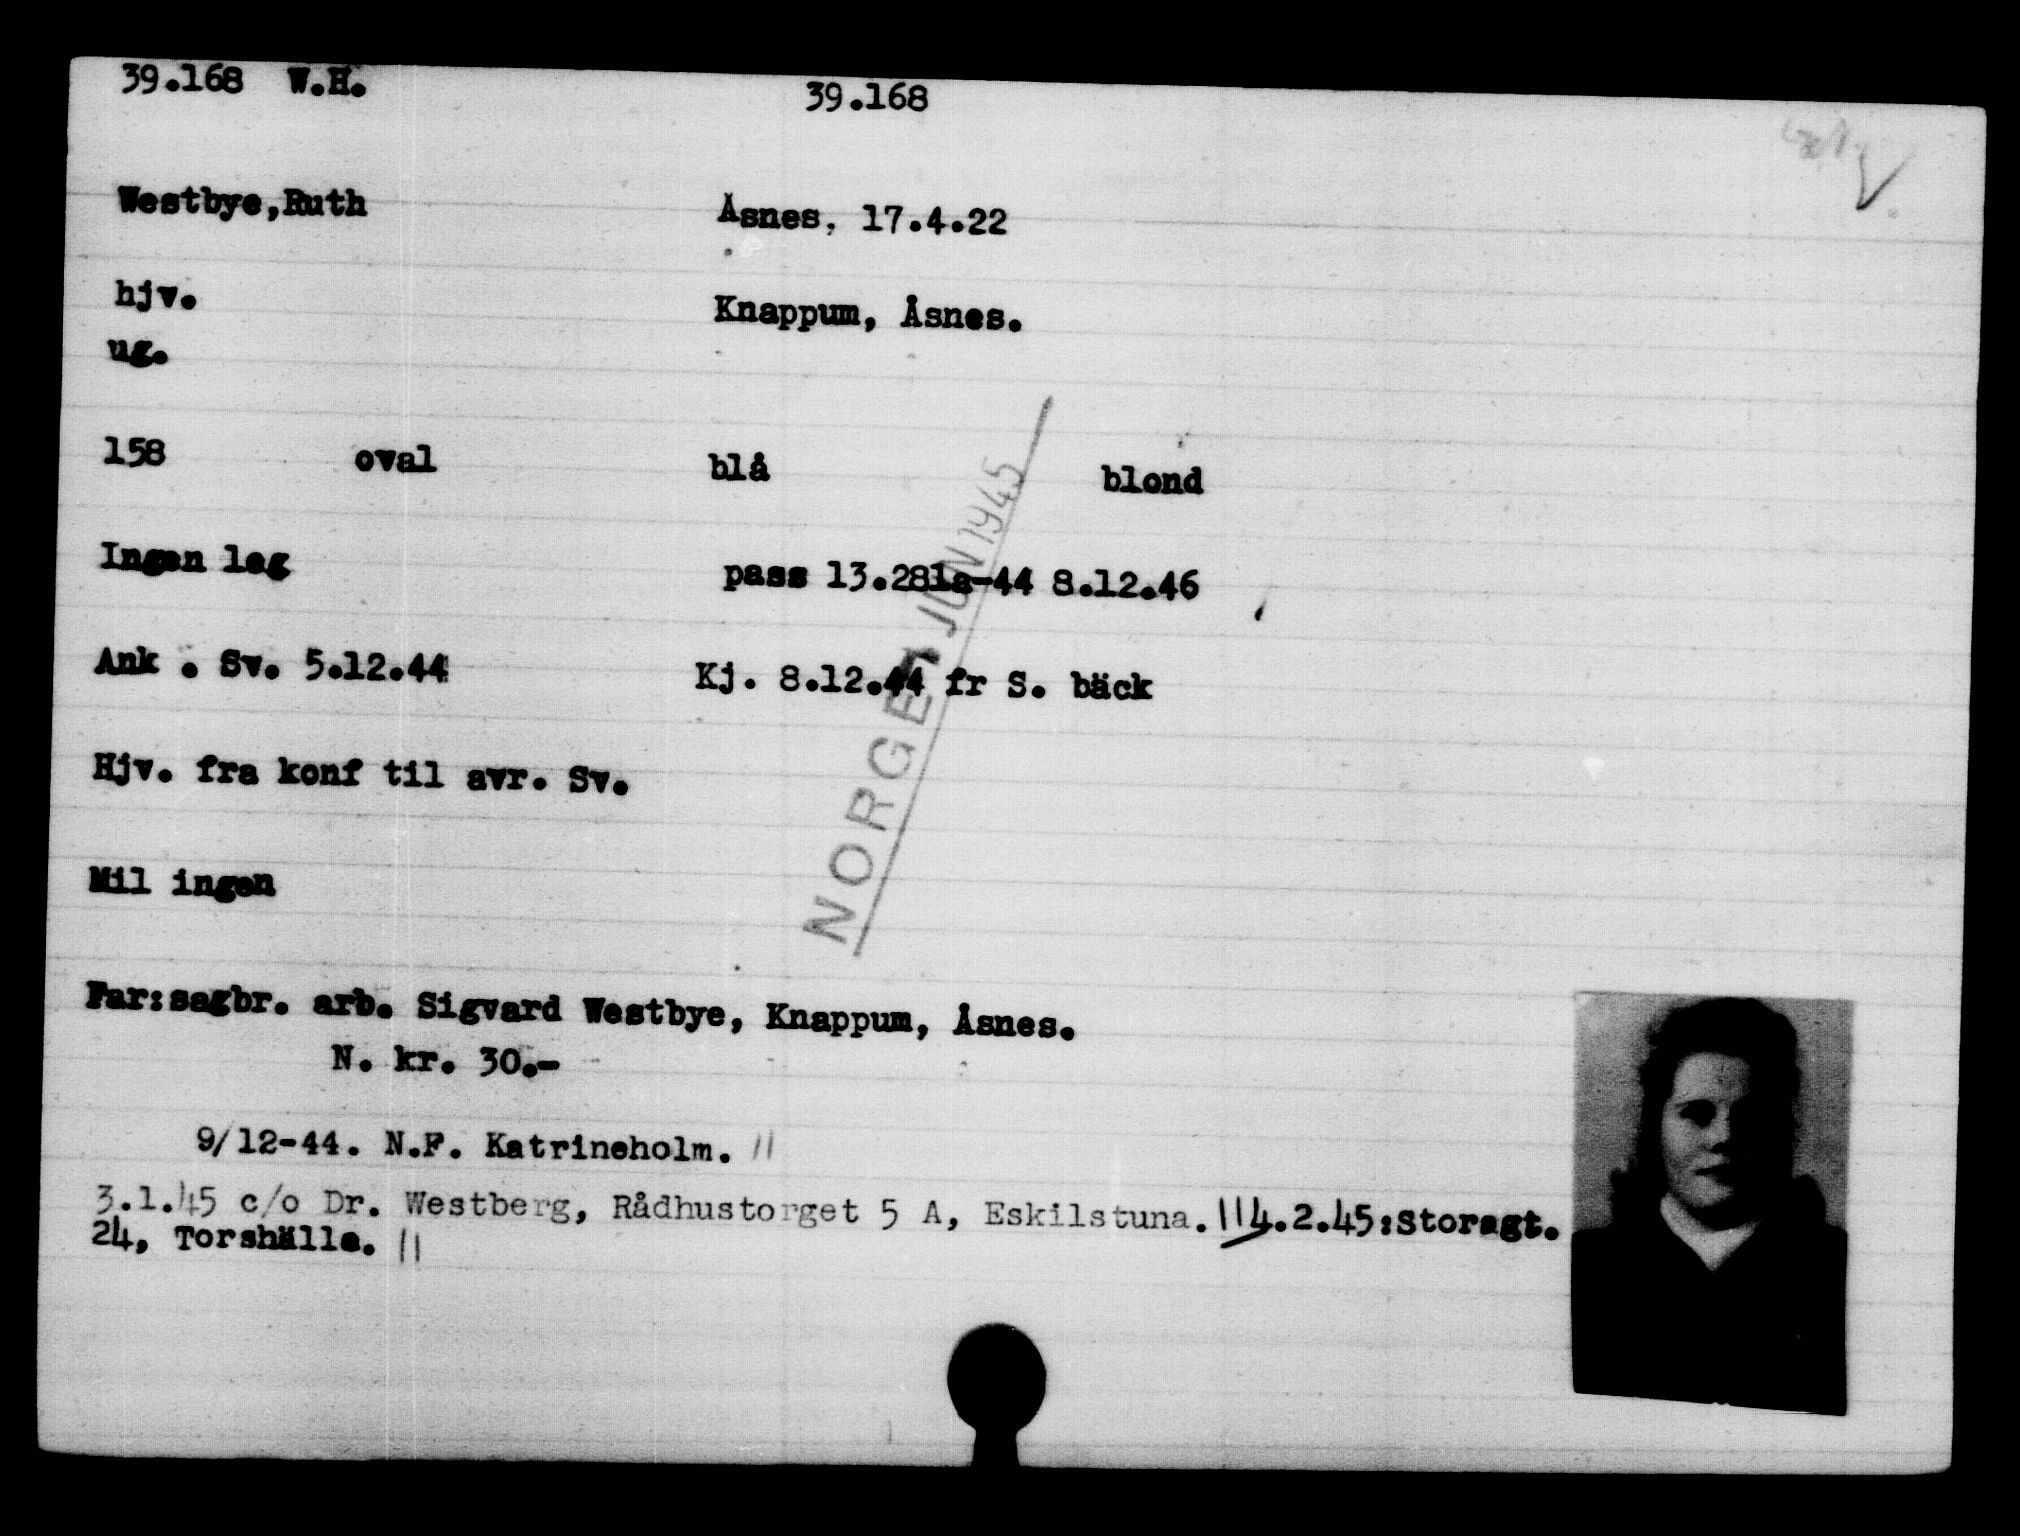 39.168 W.H. 39.168
Westbye,Ruth Åsnes, 17.4.22
hjv. Knappum, Åsnes.
ug.
158 oval blå blond
Ingen leg pass 13.281a-44 8.12.46
Ank . Sv. 5.12.44 Kj. 8.12.44 fr S. bäck
NORGE JUN 1945
Hjv. fra konf til avr. Sv.
Mil ingen
Far:sagbr. arb. Sigvard Westbye, Knappum, Åsnes.
N. kr. 30.-
9/12-44. N.F. Katrineholm. //
3.1.45 c/o Dr. Westberg, Rådhustorget 5 A, Eskilstuna. || 4.2.45:Storagt.
24, Torshälla. ||